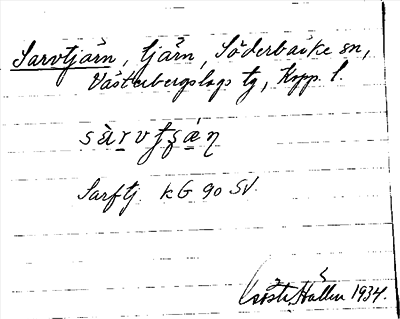 Sarvtjärn, tjärn, Söderbärke sn,
Västerbergslags tg, Kopp. l.
Sarftj. KG 90 SV.
Hållén 1934.